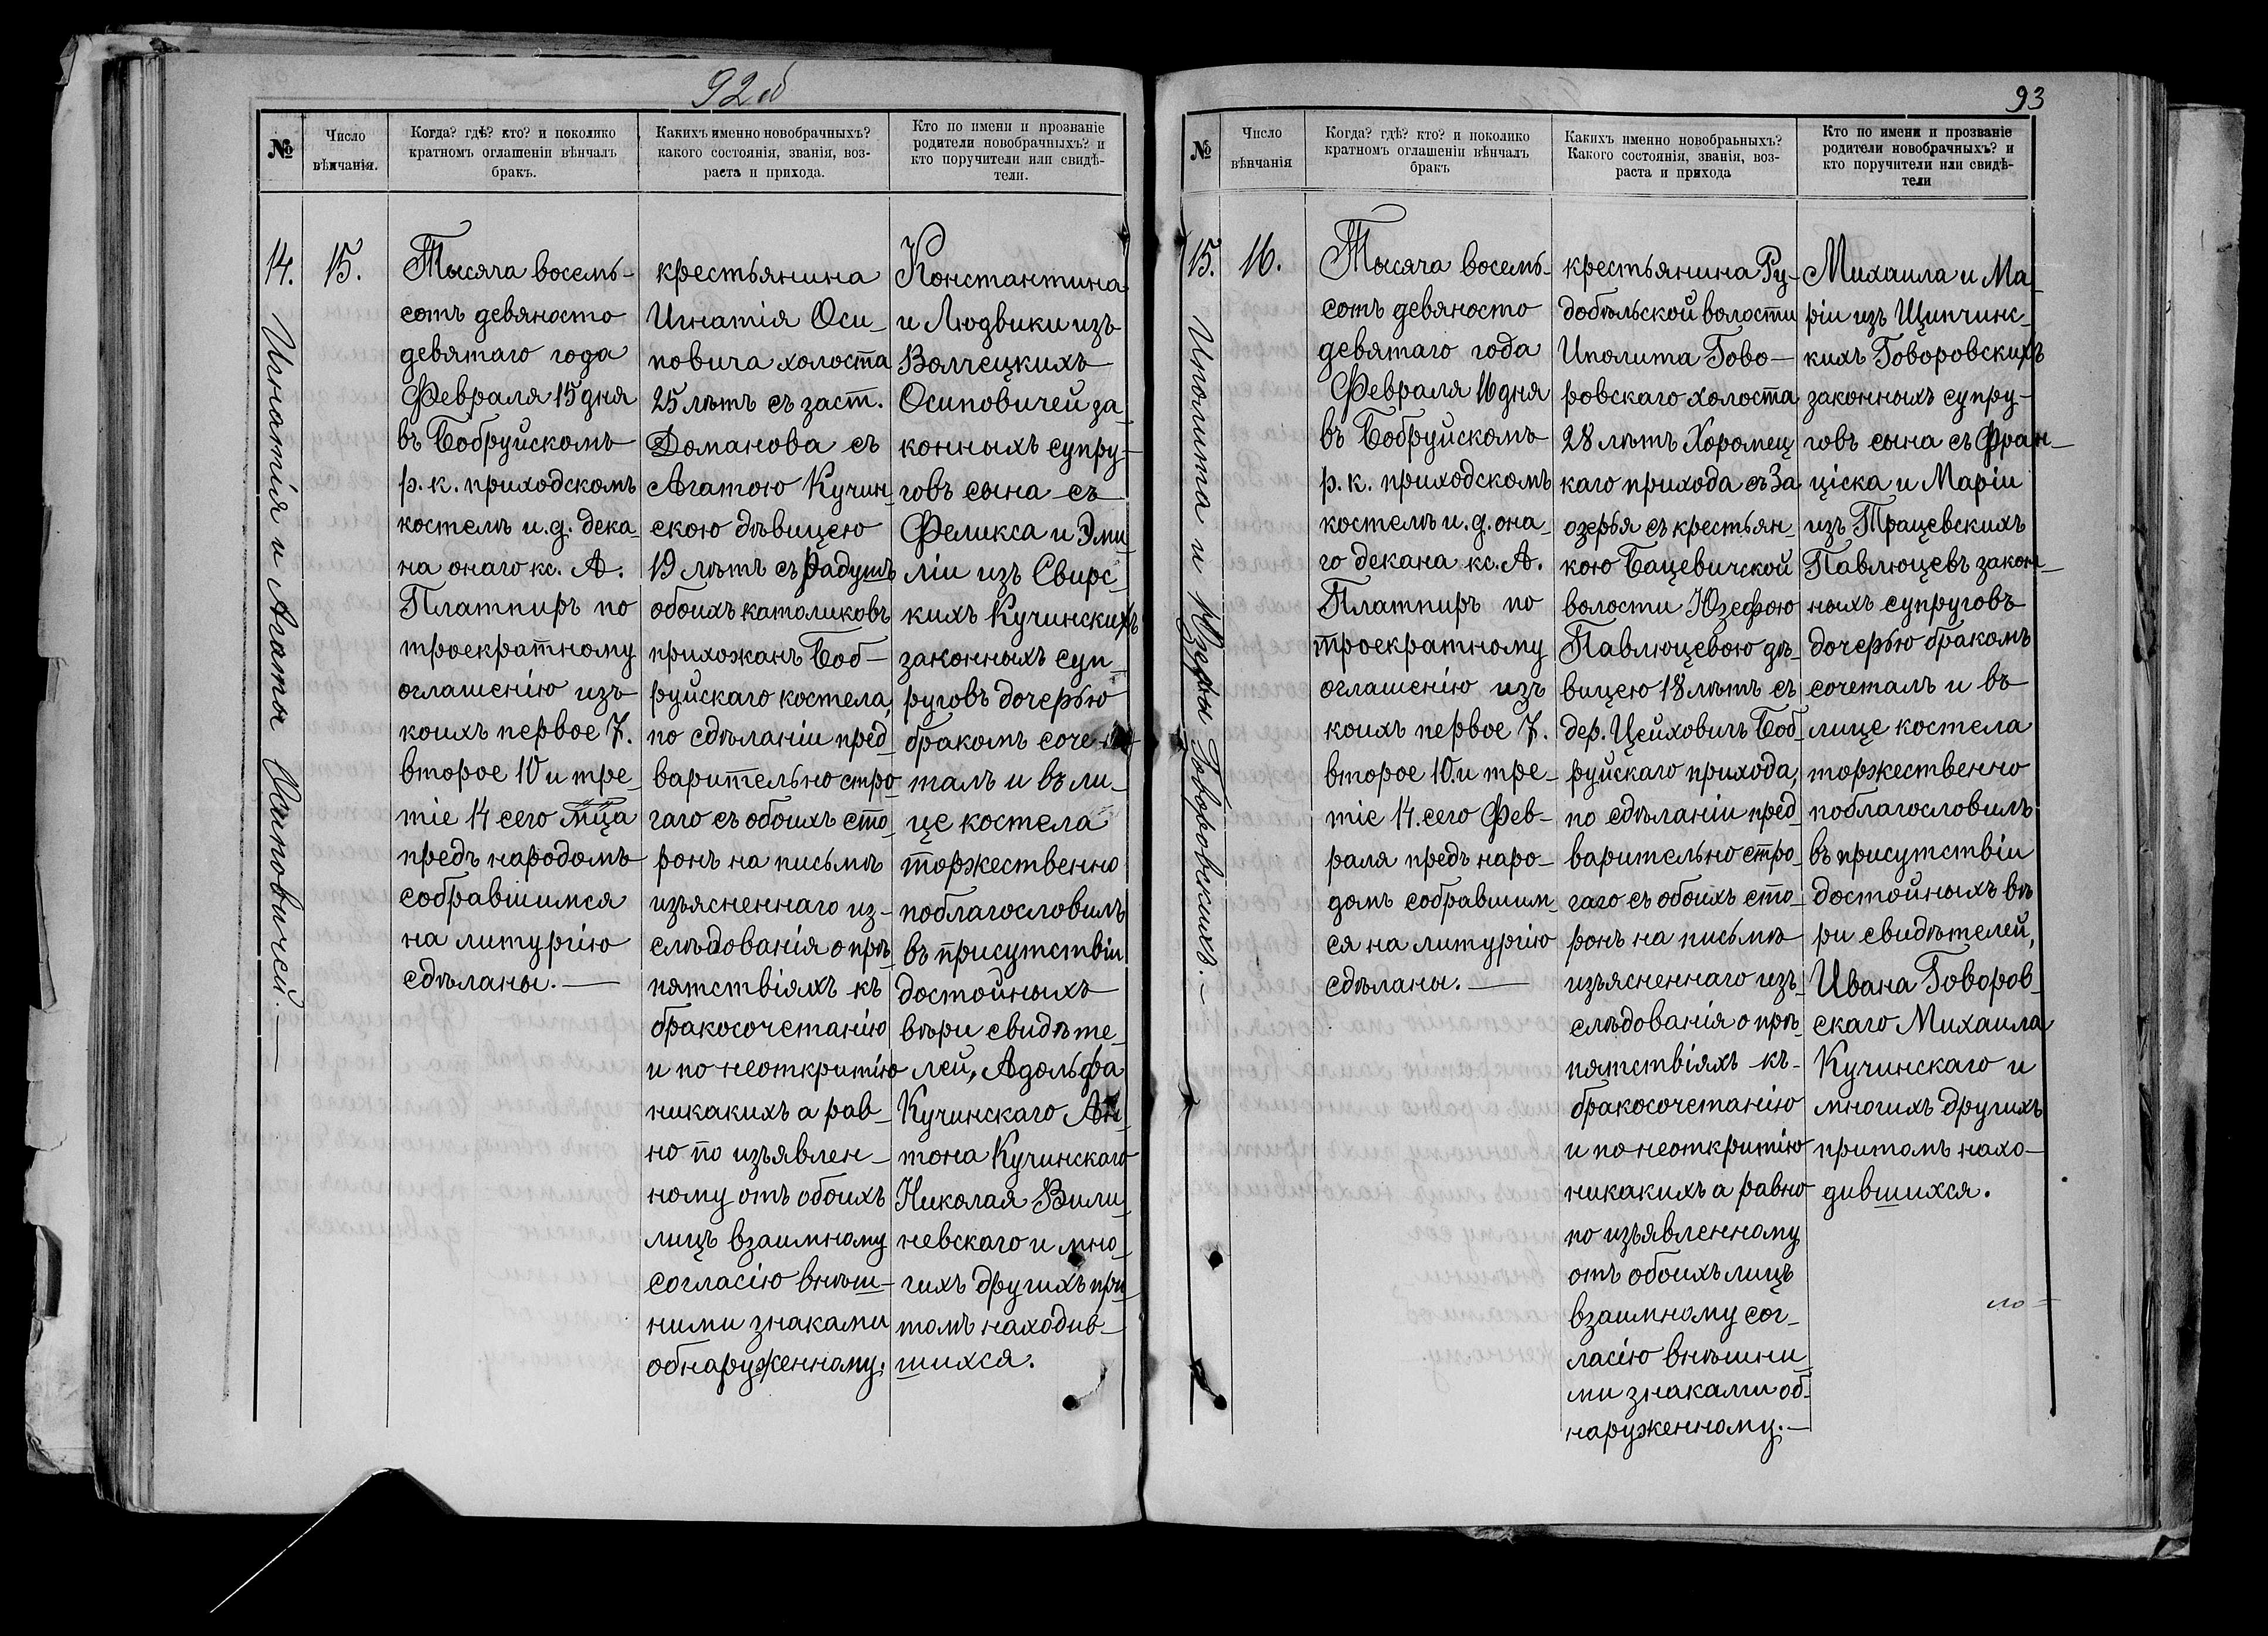 92об
№
Число
вѣнчанія.
Когда? гдѣ? кто? и поколико
кратномъ оглашеніи вѣнчалъ
бракъ.
Какихъ именно новобрачныхъ?
какого состоянія, званія, воз-
раста и прихода.
Кто по имени и прозваніе
родители новобрачныхъ? и
кто поручители или свидѣ-
тели.
14.
Игнатія и Агаты Осиповичей.—
15.
Тысяча восемь-
сотъ девяносто
девятаго года
Февраля 15 дня
въ Бобруйскомъ
р. к. приходскомъ
костелѣ и. д. дека-
на онаго кс. А.
Платпиръ по
троекратному
оглашенію изъ
коихъ первое 7.
второе 10 и тре-
тіе 14 сего м̃ца
предъ народомъ
собравшимся
на литургію
сдѣланы.—
крестьянина
Игнатія Оси-
повича холоста
25 лѣтъ съ заст.
Доманова съ
Агатою Кучин-
скою дѣвицею
19 лѣтъ съ Радушъ
обоихъ католиковъ
прихожанъ Боб-
руйскаго костела,
по сдѣланіи пред-
варительно стро-
гаго съ обоихъ сто-
ронъ на письмѣ
изъясненнаго из-
слѣдованія о прѣ-
пятствіяхъ къ
бракосочетанію
и по неоткритію
никакихъ а рав-
но по изъявлен-
ному отъ обоихъ
лицъ взаимному
согласію внѣш-
ними знаками
обнаруженному.
Константина
и Людвики изъ
Волчецкихъ
Осиповичей за-
конныхъ супру-
говъ сына съ
Феликса и Эми-
ліи изъ Свирс-
кихъ Кучинскихъ
законныхъ суп-
руговъ дочерью
бракомъ соче-
талъ и въ ли-
це костела
торжественно
поблагословилъ
въ присутствіи
достойныхъ
вѣри свидѣте-
лей, Адольфа
Кучинскаго Ан-
тона Кучинскаго
Николая Вили-
невскаго и мно-
гихъ другихъ при-
томъ находив-
шихся.
93
№
Число
вѣнчанія
Когда? гдѣ? кто? и поколико
кратномъ оглашеніи вѣнчалъ
бракъ
Какихъ именно новобраьныхъ?
Какого состоянія, званія, воз-
раста и прихода
Кто по имени и прозваніе
родители новобрачныхъ? и
кто поручители или свидѣ-
тели
15.
Иполита и Юзефы Говоровскихъ.—
16.
Тысяча восемь-
сотъ девяносто
девятаго года
Февраля 16 дня
въ Бобруйскомъ
р. к. приходскомъ
костелѣ и. д. она-
го декана кс. А.
Платпиръ по
троекратному
оглашенію изъ
коихъ первое 7.
второе 10. и тре-
тіе 14. сего Фев-
раля предъ наро-
домъ собравшим-
ся на литургію
сдѣланы.—
крестьянина Ру-
добѣльской волости
Иполита Гово-
ровскаго холоста
28 лѣтъ Хоромец
каго прихода съ За
озерья съ крестьян-
кою Бацевичской
волости Юзефою
Павлюцевою дѣ-
вицею 18 лѣтъ съ
дер. Цейховичъ Боб-
руйскаго прихода,
по сдѣланіи пред-
варительно стро-
гаго съ обоихъ сто-
ронъ на письмѣ
изъясненнаго изъ-
слѣдованія о прѣ-
пятствіяхъ къ-
бракосочетанію
и по неоткритію
никакихъ а равно
по изъявленному
отъ обоихъ лицъ
взаимному сог-
ласію внѣшни
ми знаками об-
наруженному.—
Михаила и Ма-
ріи изъ Щипчинс-
кихъ Говоровскихъ
законныхъ супру-
говъ сына съ Фран-
ціска и Маріи
изъ Трацевскихъ
Павлюцевъ закон-
ныхъ супруговъ
дочерью бракомъ
сочеталъ и въ
лице костела
торжественно
поблагословилъ
въ присутствіи
достойныхъ вѣ
ри свидѣтелей,
Ивана Говоров-
скаго Михаила
Кучинскаго и
многихъ другихъ
притомъ нахо-
дившихся.